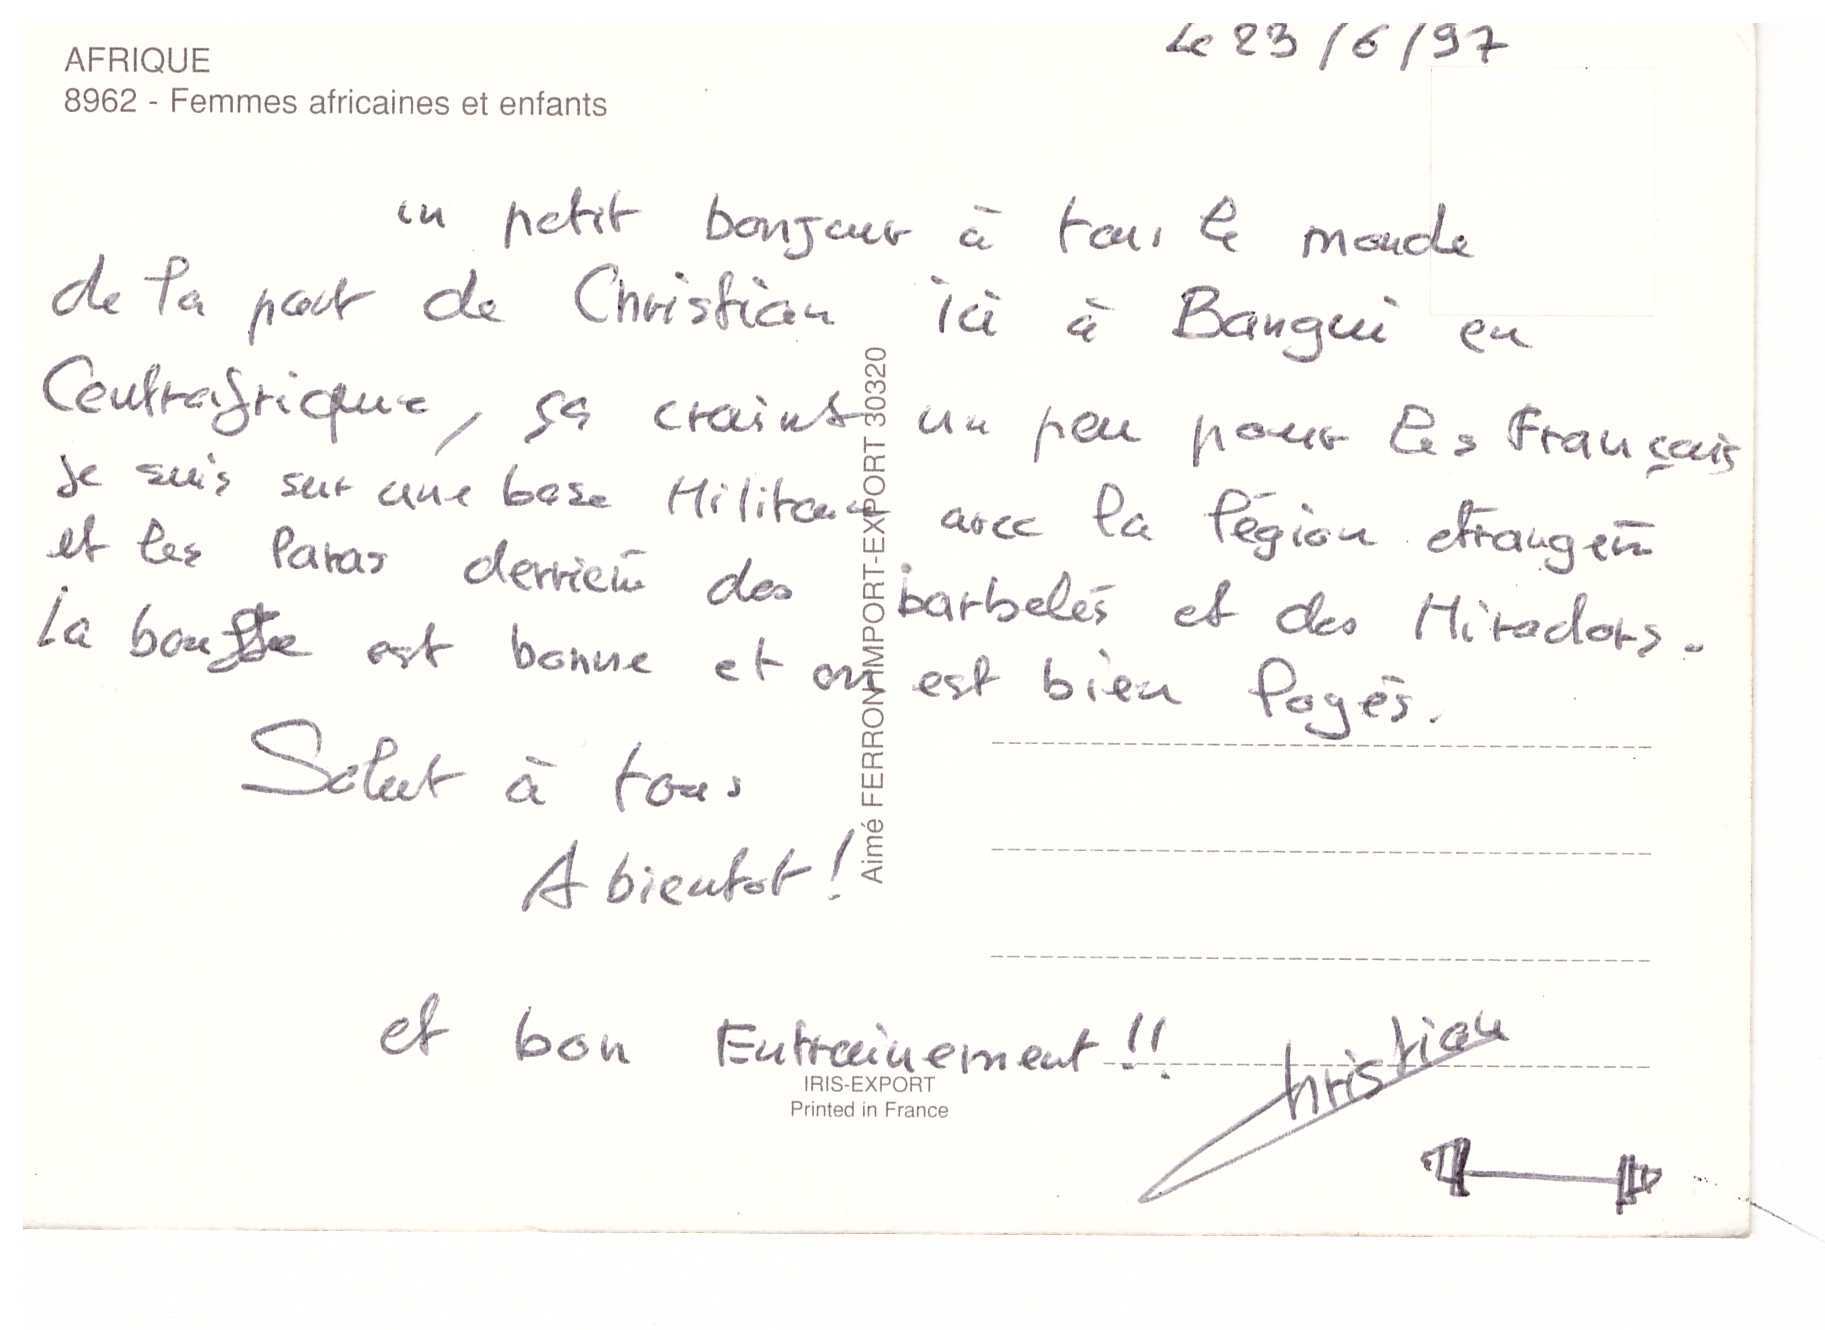 Le 23/6/97
AFRIQUE
8962 - Femmes africaines et enfants
un petit bonjour à tous le monde
de la part de Christian ici à Bangui en
Centrafrique, ça craint un peu pour les Français
Je suis sur une base Militaire avec la légion étrangère
et les Paras derrière des barbelés et des Miradors.
La bouffe est bonne et on est bien Payés.
Salut à tous
A bientot !
et bon Entrainement !!
Christian
Aimé FERRONI IMPORT-EXPORT 30320
IRIS-EXPORT
Printed in France